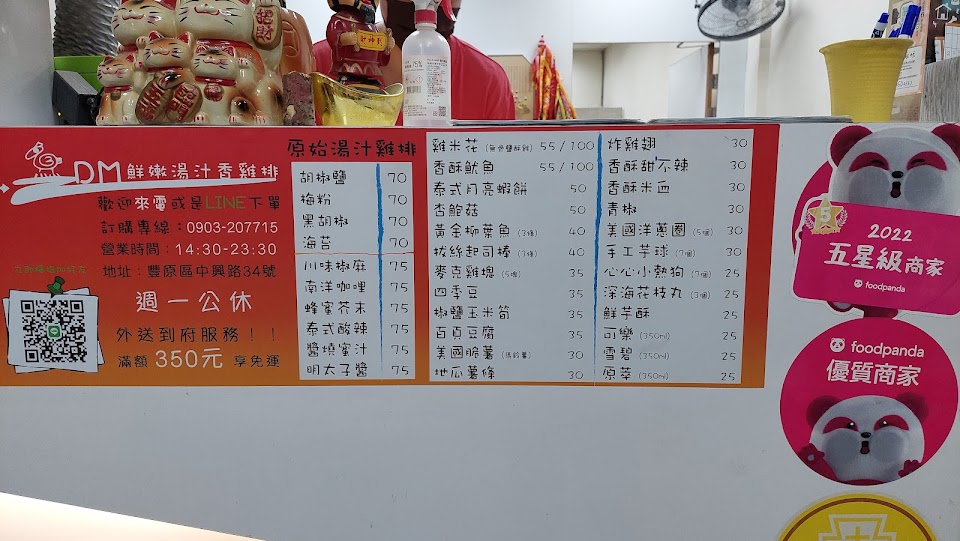 DM 鮮嫩湯汁香雞排
歡迎來電或是LINE下單
訂購專線：0903-207715
營業時間：14:30-23:30
地址：豐原區中興路34號
週一公休
外送到府服務！！
滿額 350元 享免運
原始湯汁雞排
胡椒鹽 70
梅粉 70
黑胡椒 70
海苔 70
川味椒麻 75
南洋咖哩 75
蜂蜜芥末 75
泰式酸辣 75
醬燒蜜汁 75
明太子醬 75
雞米花 (無骨鹽酥雞) 55/100
香酥魷魚 55/100
泰式月亮蝦餅 50
杏鮑菇 50
黃金柳葉魚 (3條) 40
拔絲起司棒 (3條) 40
麥克雞塊 (5塊) 35
四季豆 35
椒鹽玉米筍 35
百頁豆腐 35
美國脆薯 (馬鈴薯) 30
地瓜薯條 30
炸雞翅 30
香酥甜不辣 30
香酥米血 30
青椒 30
美國洋蔥圈 (5個) 30
手工芋球 (7個) 30
心心小熱狗 (7個) 25
深海花枝丸 (3個) 25
鮮芋酥 25
可樂 (350ml) 25
雪碧 (350ml) 25
原萃 (350ml) 25
5
2022
五星級商家
foodpanda
foodpanda
優質商家